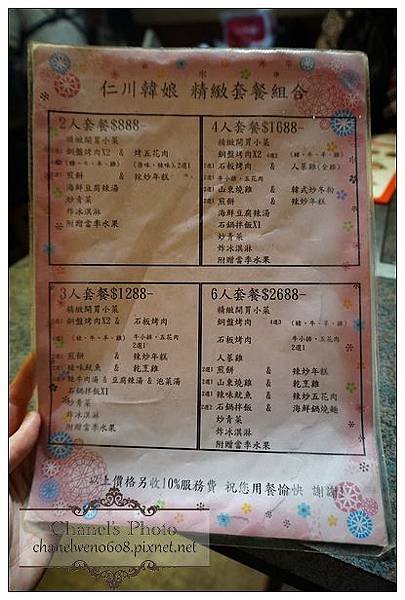 仁川韓娘 精緻套餐組合
2人套餐$888-
精緻開胃小菜
銅盤烤肉X2 & 烤五花肉
(豬、牛、羊、雞) (原味、辣味入2選1)
煎餅 & 辣炒年糕
海鮮豆腐辣湯
炒青菜
炸冰淇淋
附贈當季水果
4人套餐$1688-
精緻開胃小菜
銅盤烤肉X2 4選2 (豬、牛、羊、雞)
2選1 石板烤肉 & 人蔘雞(全雞)
2選1 牛小排、五花肉
2選1 山東燒雞 & 韓式炒冬粉
2選1 煎餅 & 辣炒年糕
海鮮豆腐辣湯
石鍋拌飯X1
炒青菜
炸冰淇淋
附贈當季水果
3人套餐$1288-
精緻開胃小菜
銅盤烤肉X2 & 石板烤肉
(豬、牛、羊、雞) 牛小排、五花肉
2選1
煎餅 & 辣炒年糕
辣味魷魚 & 乾烹雞
辣牛肉湯 & 豆腐辣湯 & 泡菜湯
石鍋拌飯X1
炒青菜
炸冰淇淋
附贈當季水果
6人套餐$2688-
精緻開胃小菜
銅盤烤肉 4選3 (豬、牛、羊、雞)
石板烤肉 牛小排、五花肉
2選1
人蔘雞
2選1 煎餅 & 辣炒年糕
2選1 山東燒雞 & 乾烹雞
2選1 辣味魷魚 & 辣炒五花肉
2選1 石鍋拌飯 & 海鮮鍋燒麵
炒青菜
炸冰淇淋
附贈當季水果
以上價格另收10%服務費 祝您用餐愉快 謝謝
Chanel's Photo
chanelweno608.pixnet.net